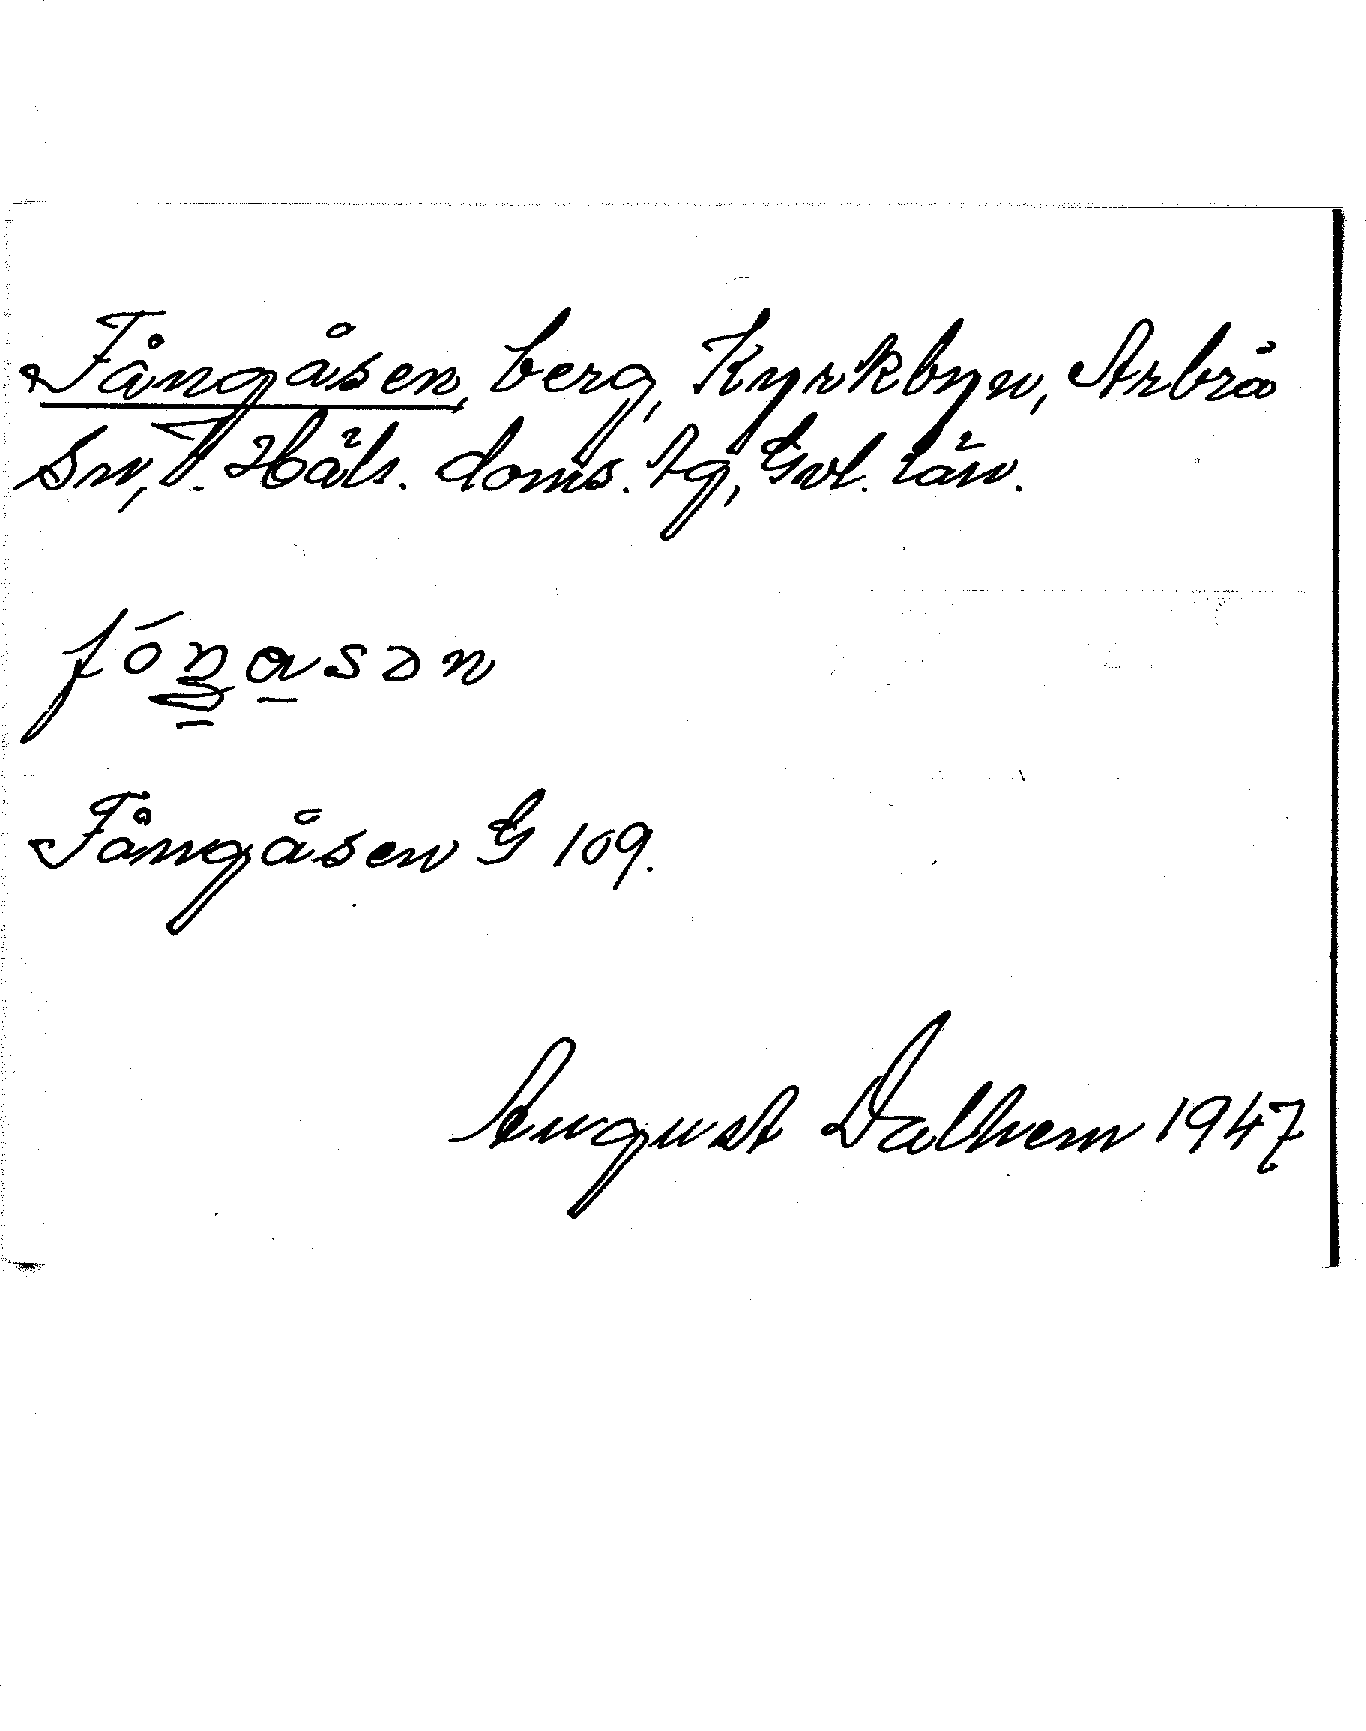 Fångåsen, berg, Kyrkbyn, Arbrå
sn, V. Häls. doms. tg, Gvl. län.
fóŋɑsən
Fångåsen G 109.
August Dalhem 1947